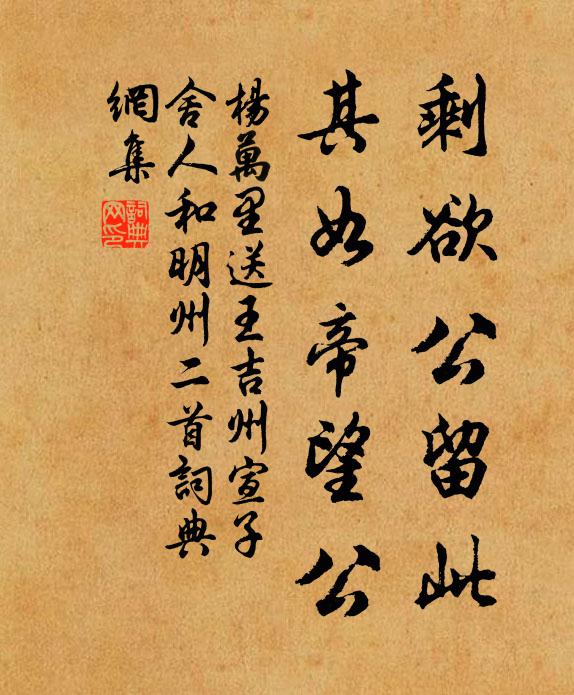 剩欲公留此
其如帝望公
楊萬里送王吉州宣子
舍人和明州二首詞典
網集
詞典網印